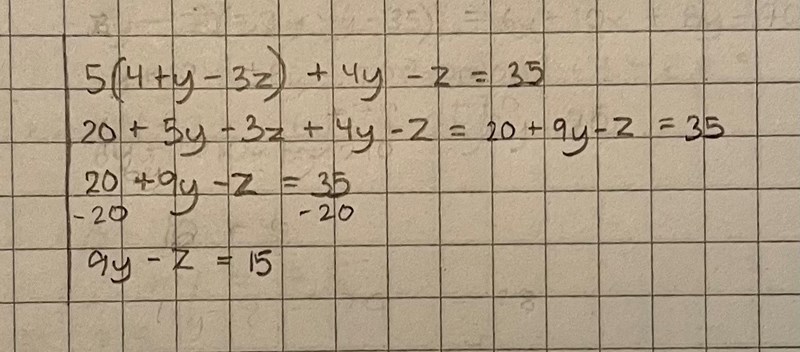 5(4+y-3z) + 4y - z = 35
20 + 5y - 3z + 4y - z = 20 + 9y - z = 35
20 + 9y - z = 35
-20 -20
9y - z = 15